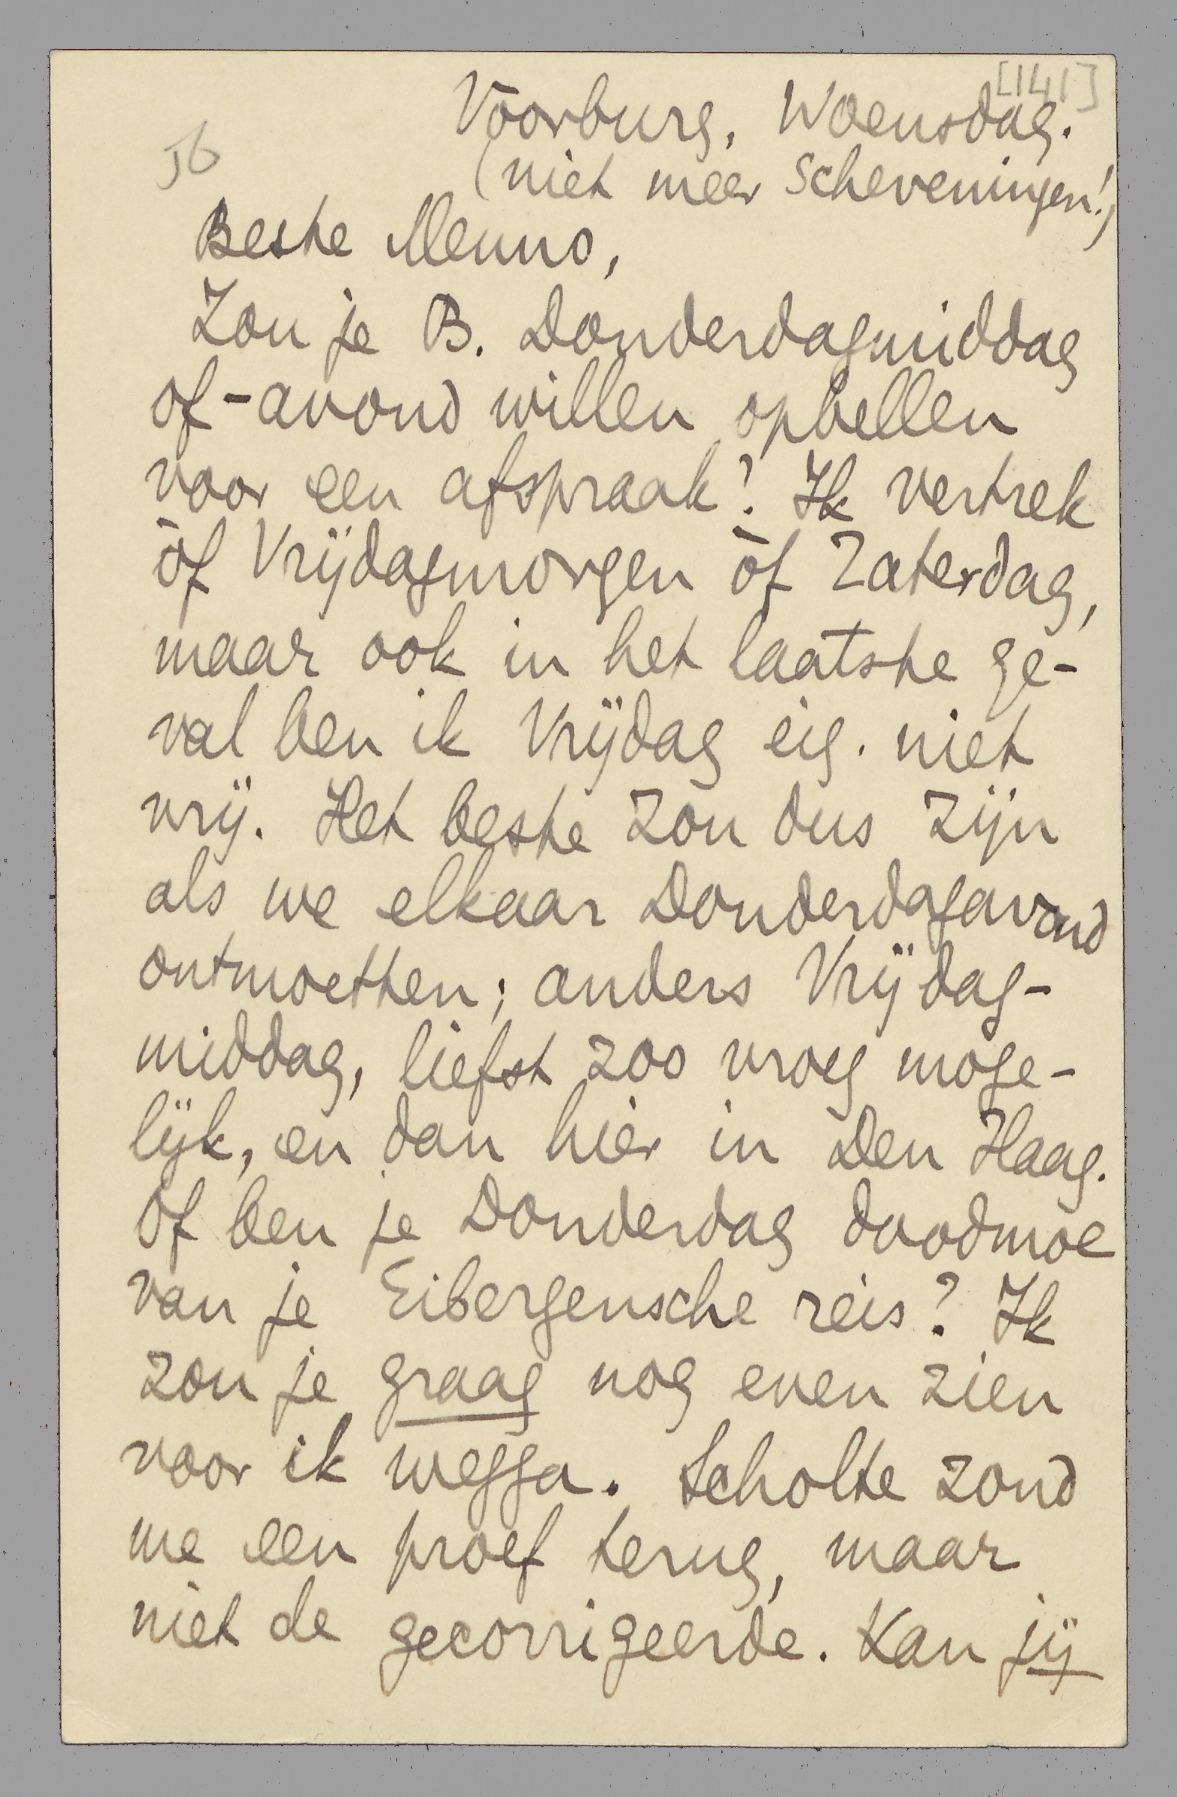 [141]
Voorburg, Woensdag.
56
(niet meer Scheveningen!)
Beste Menno,
Zou je B. Donderdagmiddag
of -avond willen opbellen
voor een afspraak? Ik vertrek
òf Vrijdagmorgen òf Zaterdag,
maar ook in het laatste ge-
val ben ik Vrijdag eig. niet
vrij. Het beste zou dus zijn
als we elkaar Donderdagavond
ontmoetten; anders Vrijdag-
middag, liefst zoo vroeg moge-
lijk, en dan hier in Den Haag.
Of ben je Donderdag doodmoe
van je Eibergensche reis? Ik
zou je graag nog even zien
voor ik wegga. Scholte zond
me een proef terug, maar
niet de gecorrigeerde. Kan jij